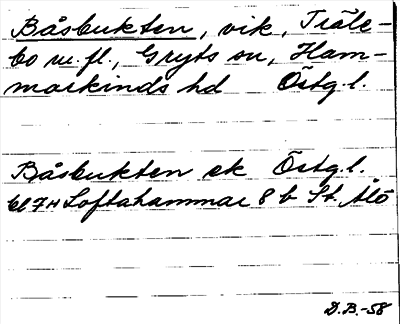 Båsbukten, vik, Träle-
bo m.fl., Gryts sn, Ham-
markinds hd Östg.l.
Båsbukten ek Östg.l.
bl 7H Loftahammar 8 b St. Ålö
D.B.-58